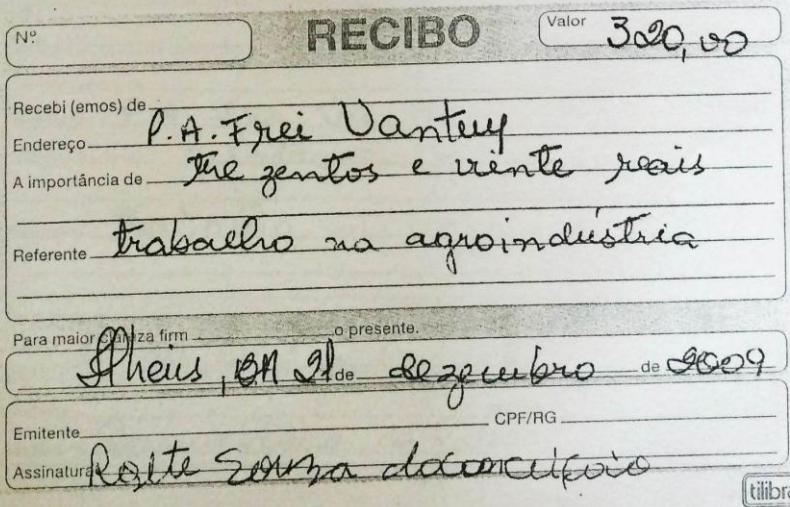 Nº RECIBO Valor 320,00
Recebi (emos) de
Endereço P.A. Frei Vantuy
A importância de Tre zentos e vinte reais
Referente trabalho na agroindústria
Para maior clareza firm o presente.
Ilheus, BA 21 de dezembro de 2009
Emitente CPF/RG
Assinatura Souza daconceição
tilibra